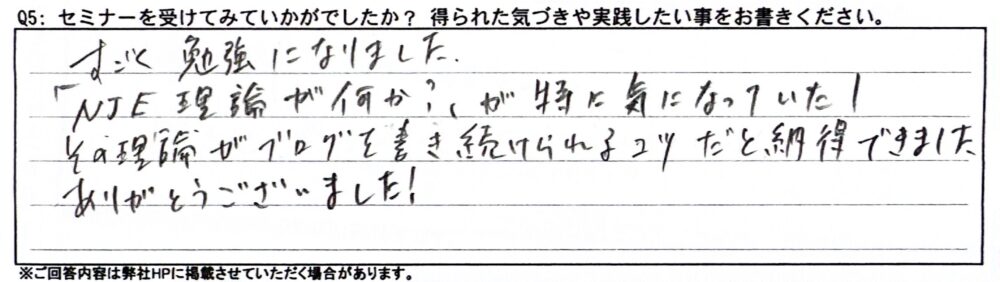 Q5: セミナーを受けてみていかがでしたか? 得られた気づきや実践したい事をお書きください。
すごく 勉強になりました.
「NJE 理論が何か?」が特に気になっていた!
その理論がブログを書き続けられるコツだと納得できました
ありがとうございました!
※ご回答内容は弊社HPに掲載させていただく場合があります。